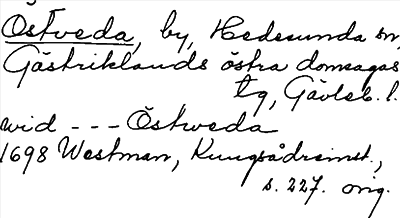 Östveda, by, Hedesunda sn,
Gästriklands östra domsagas
tg, Gävleb. l.
wid --- Östweda
1698 Westman, Kungsådreinst.,
s. 227. orig.